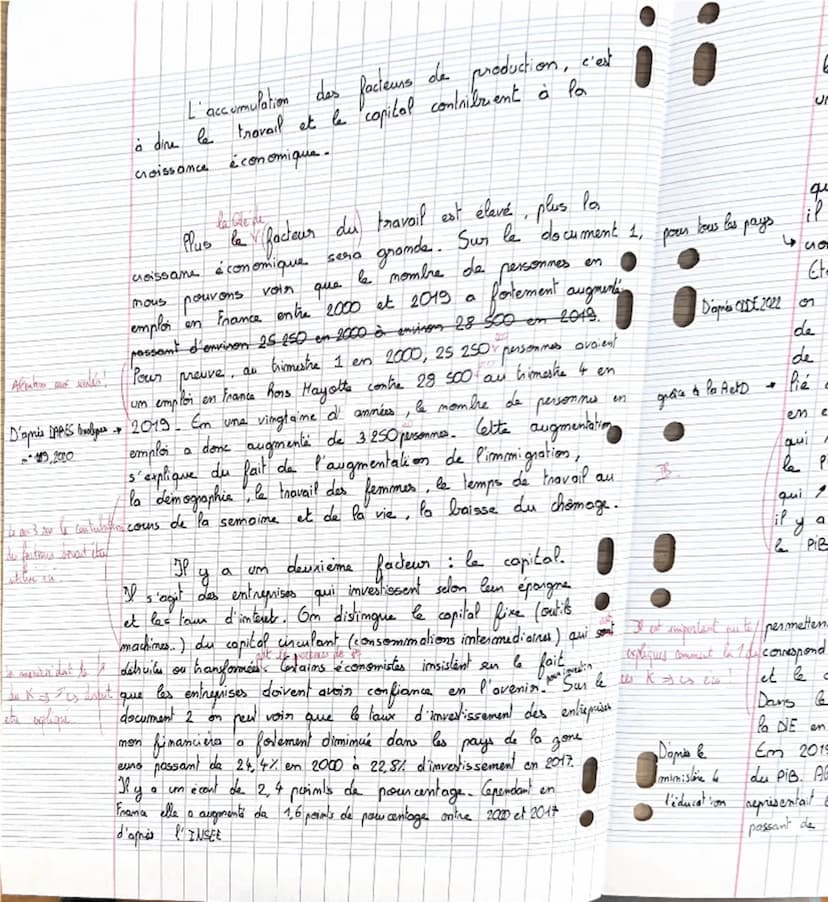 L'accumulation des facteurs de production, c'est
à dire le travail et le capital contribuent à la
croissance économique.
la Qté de
Plus le (facteur du) travail est élevé, plus la
croissance économique sera grande. Sur le document 1,
nous pouvons voir que le nombre de personnes en
emploi en France entre 2000 et 2019 a fortement augmenté
passant d'environ 25 250 en 2000 à environ 28 500 en 2019.
Pour preuve, au trimestre 1 en 2000, 25 250 personnes avaient
un emploi en France hors Mayotte contre 28 500 au trimestre 4 en
2019. En une vingtaine d'années, le nombre de personnes en
emploi a donc augmenté de 3 250 personnes. Cette augmentation
s'explique du fait de l'augmentation de l'immigration,
la démographie, le travail des femmes, le temps de travail au
cours de la semaine et de la vie, la baisse du chômage.
Attention aux unités!
D'après DARES Analyses
n° 2020
Le doc 3 sur la contribution
du facteur travail
utilisé ici
Il y a un deuxième facteur : le capital.
Il s'agit des entreprises qui investissent selon leur épargne
et les taux d'intérêt. On distingue le capital fixe (outils
machines..) du capital circulant (consommations intermédiaires) qui sont
détruits ou transformés. Certains économistes insistent sur le fait
que les entreprises doivent avoir confiance en l'avenir pour investir. Sur le
document 2 on peut voir que le taux d'investissement des entreprises
non financières a fortement diminué dans les pays de la zone
euro passant de 24,4% en 2000 à 22,8% d'investissement en 2017.
Il y a un écart de 2,4 points de pourcentage. Cependant en
France elle a augmenté de 1,6 points de pourcentage entre 2000 et 2017
d'après l'INSEE
être expliqué
pour tous les pays
D'après OCDE 2022
grâce à la
Il est important que tu
expliques comment le
D'après le
ministère de
l'éducation
qu
il
Et
on
de
de
lié
en e
qui
le P
qui
il y a
le PiB
permetten
correspond
et le
Dans le
la DIE en
En 2019
du PiB. Al
représentait
passant de